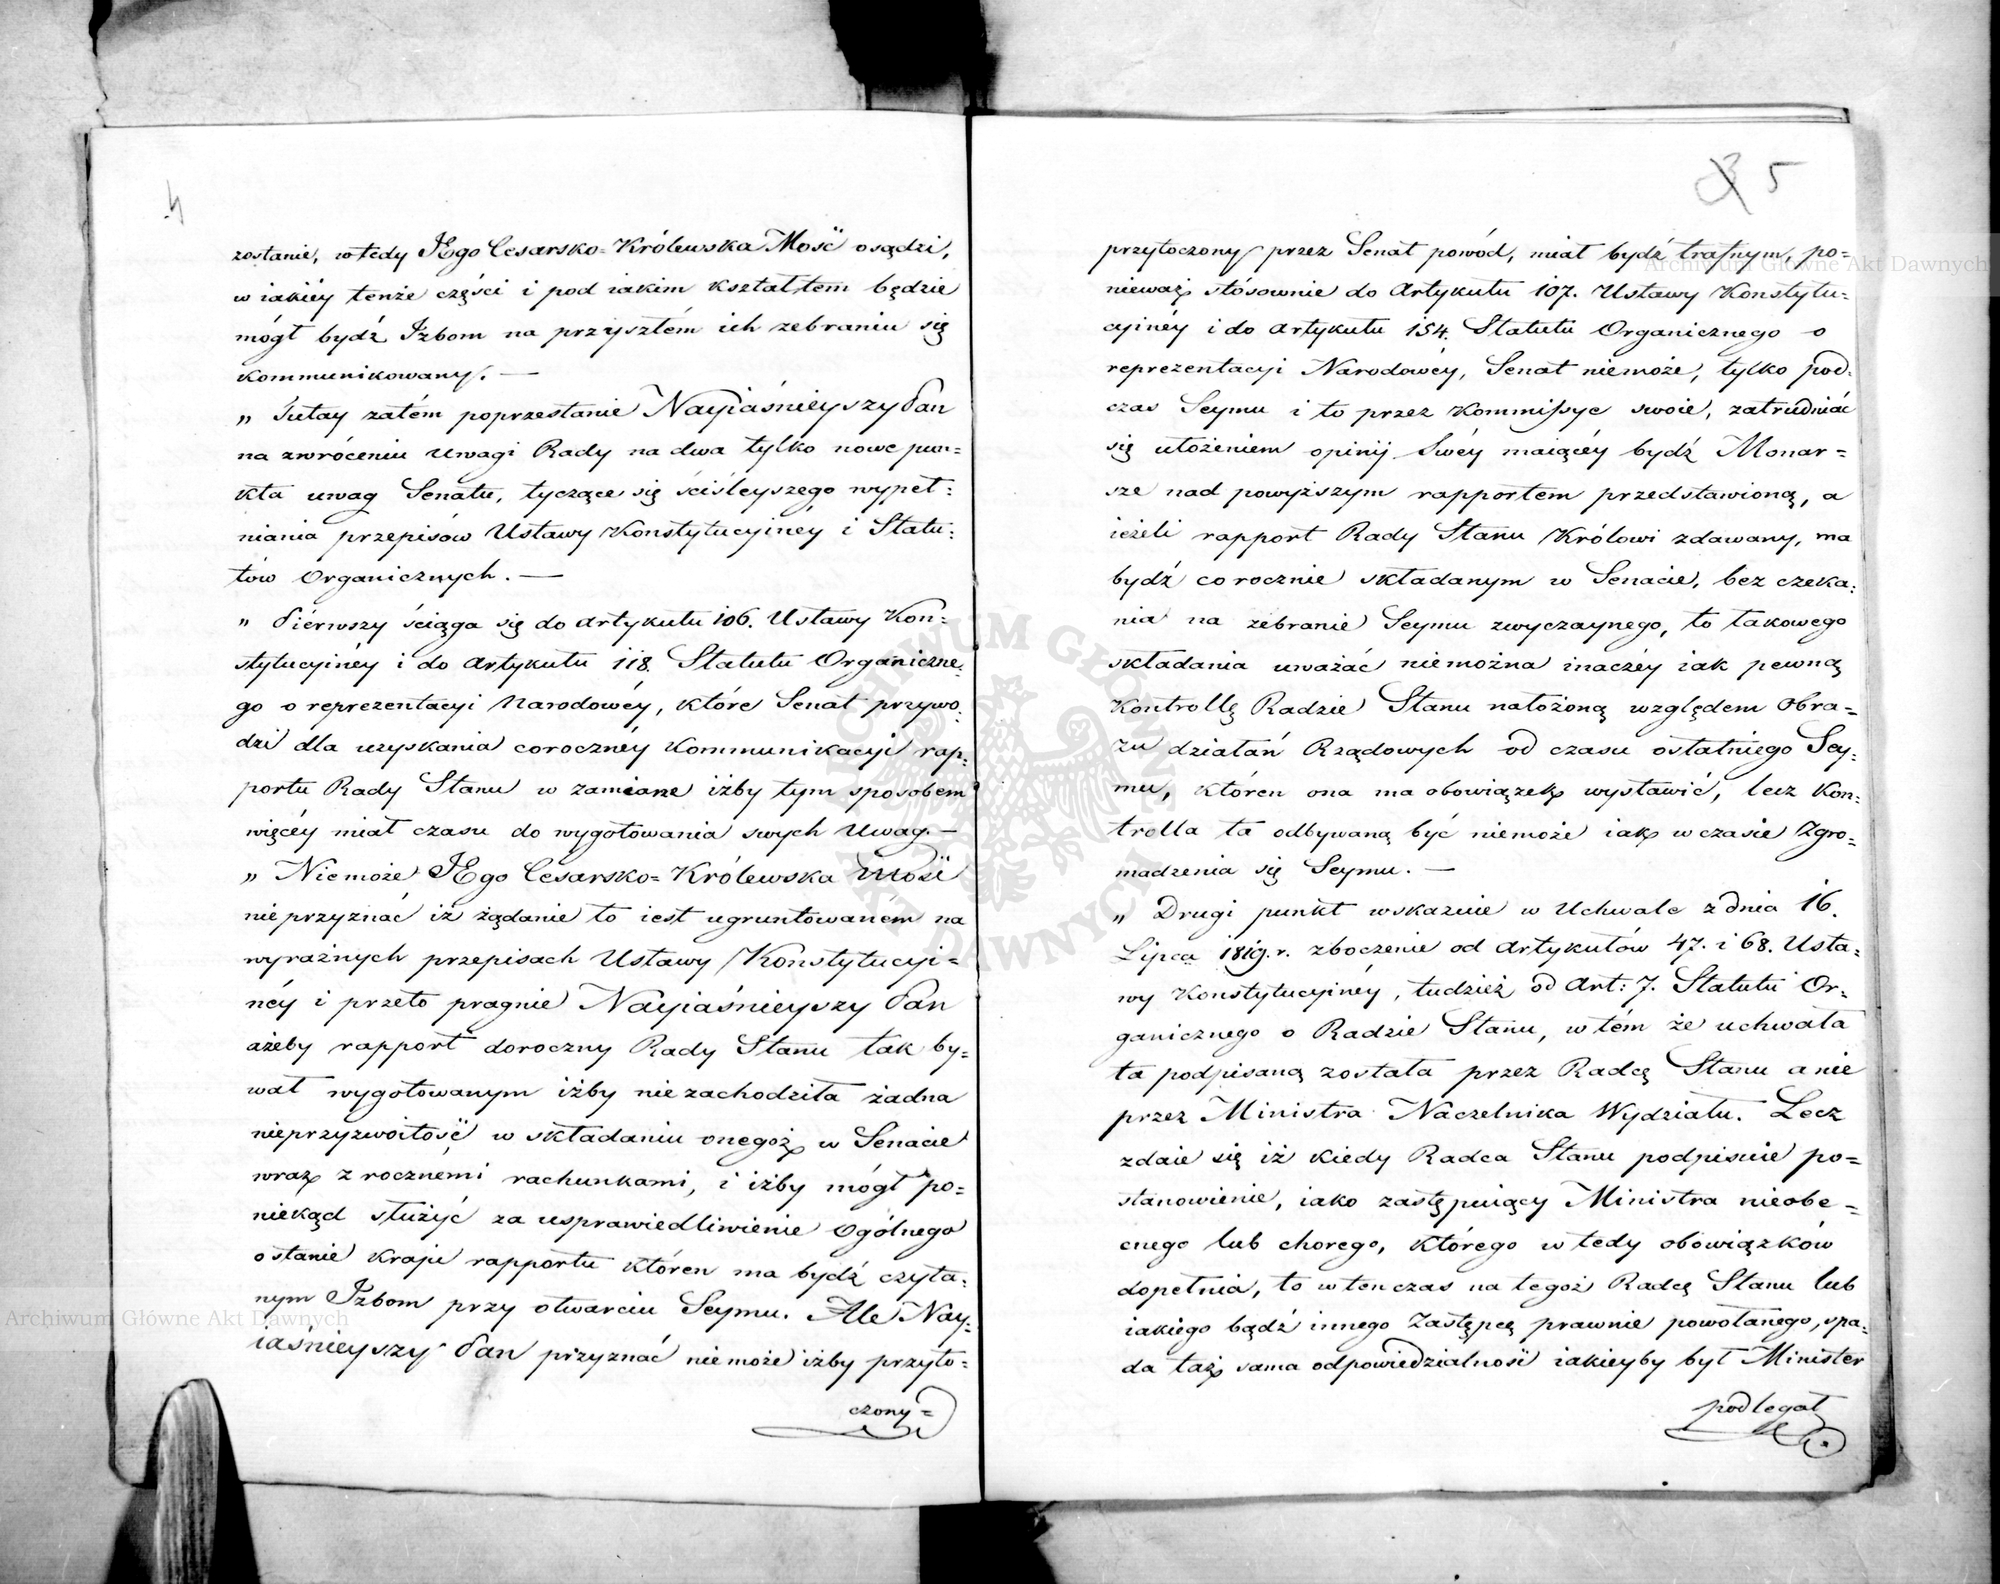 4
zostanie, wtedy JEgo Cesarsko-Królewska Mość osądzi,
w iakiéy tenże części i pod iakim kształtem będzie
mógł bydź Izbom na przyszłém ich zebraniu się
kommunikowany. —
„ Tutay zatém poprzestanie Nayiaśnieyszy Pan
na zwróceniu uwagi Rady na dwa tylko nowe pun=
kta uwag Senatu, tyczące się ściśleyszego wypeł=
niania przepisów Ustawy Konstytucyinéy i Statu=
tów Organicznych. —
„ Pierwszy ściąga się do artykułu 106. Ustawy Kon=
stytucyinéy i do artykułu 118. Statutu Organiczne=
go o reprezentacyi Narodowéy, które Senat przywo=
dzi dla uzyskania corocznéy kommunikacyi rap=
portu Rady Stanu w zamiarze iżby tym sposobem
więcéy miał czasu do wygotowania swych Uwag. —
„ Niemoże JEgo Cesarsko=Królewska Mość
nieprzyznać iż żądanie to iest ugruntowaném na
wyraźnych przepisach Ustawy Konstytucyi=
néy i przeto pragnie Nayiaśnieyszy Pan
ażeby rapport doroczny Rady Stanu tak by=
wał wygotowanym iżby niezachodziła żadna
nieprzyzwoitość w składaniu onegoż w Senacie
wraz z rocznemi rachunkami, i iżby mógł po=
niekąd służyć za usprawiedliwienie Ogólnego
o stanie kraju rapportu któren ma bydź czyta=
nym Izbom przy otwarciu Seymu. Ale Nay=
iaśnieyszy Pan przyznać niemoże iżby przyto=
czony=
5
przytoczony przez Senat powód, miał bydź trafnym, po=
nieważ stósownie do Artykułu 107. Ustawy Konstytu=
cyinéy i do artykułu 154. Statutu Organicznego o
reprezentacyi Narodowéy, Senat niemoże, tylko pod=
czas Seymu i to przez Kommissye swoie, zatrudniać
się ułożeniem opinij Swéy maiącéy bydź Monar=
sze nad powyższym rapportem przedstawioną, a
ieżeli rapport Rady Stanu Królowi zdawany, ma
bydź corocznie składanym w Senacie, bez czeka=
nia na zebranie Seymu zwyczaynego, to takowego
składania uważać niemożna inaczéy iak pewną
Kontrollę Radzie Stanu nałożoną względem Obra=
zu działań Rządowych od czasu ostatniego Sey=
mu, któren ona ma obowiązek wystawić, lecz Kon=
trolla ta odbywaną być niemoże iak w czasie Zgro=
madzenia się Seymu. —
„ Drugi punkt wskazuie w Uchwale z dnia 16.
Lipca 1819. r. zboczenie od Artykułów 47. i 68. Usta=
wy Konstytucyinéy, tudzież od Art: 7. Statutu Or=
ganicznego o Radzie Stanu, w tém że uchwała
ta podpisaną została przez Radcę Stanu a nie
przez Ministra Naczelnika Wydziału. Lecz
zdaie się iż kiedy Radca Stanu podpisuie po=
stanowienie, iako zastępuiący Ministra nieobe=
cnego lub chorego, którego wtedy obowiązków
dopełnia, to wtenczas na tegoż Radcę Stanu lub
iakiego bądź innego Zastępcę prawnie powołanego, spa=
da taż sama odpowiedzialność iakieyby był Minister
podlegał
Archiwum Główne Akt Dawnych
Archiwum Główne Akt Dawnych
ARCHIWUM GŁÓWNE AKT DAWNYCH